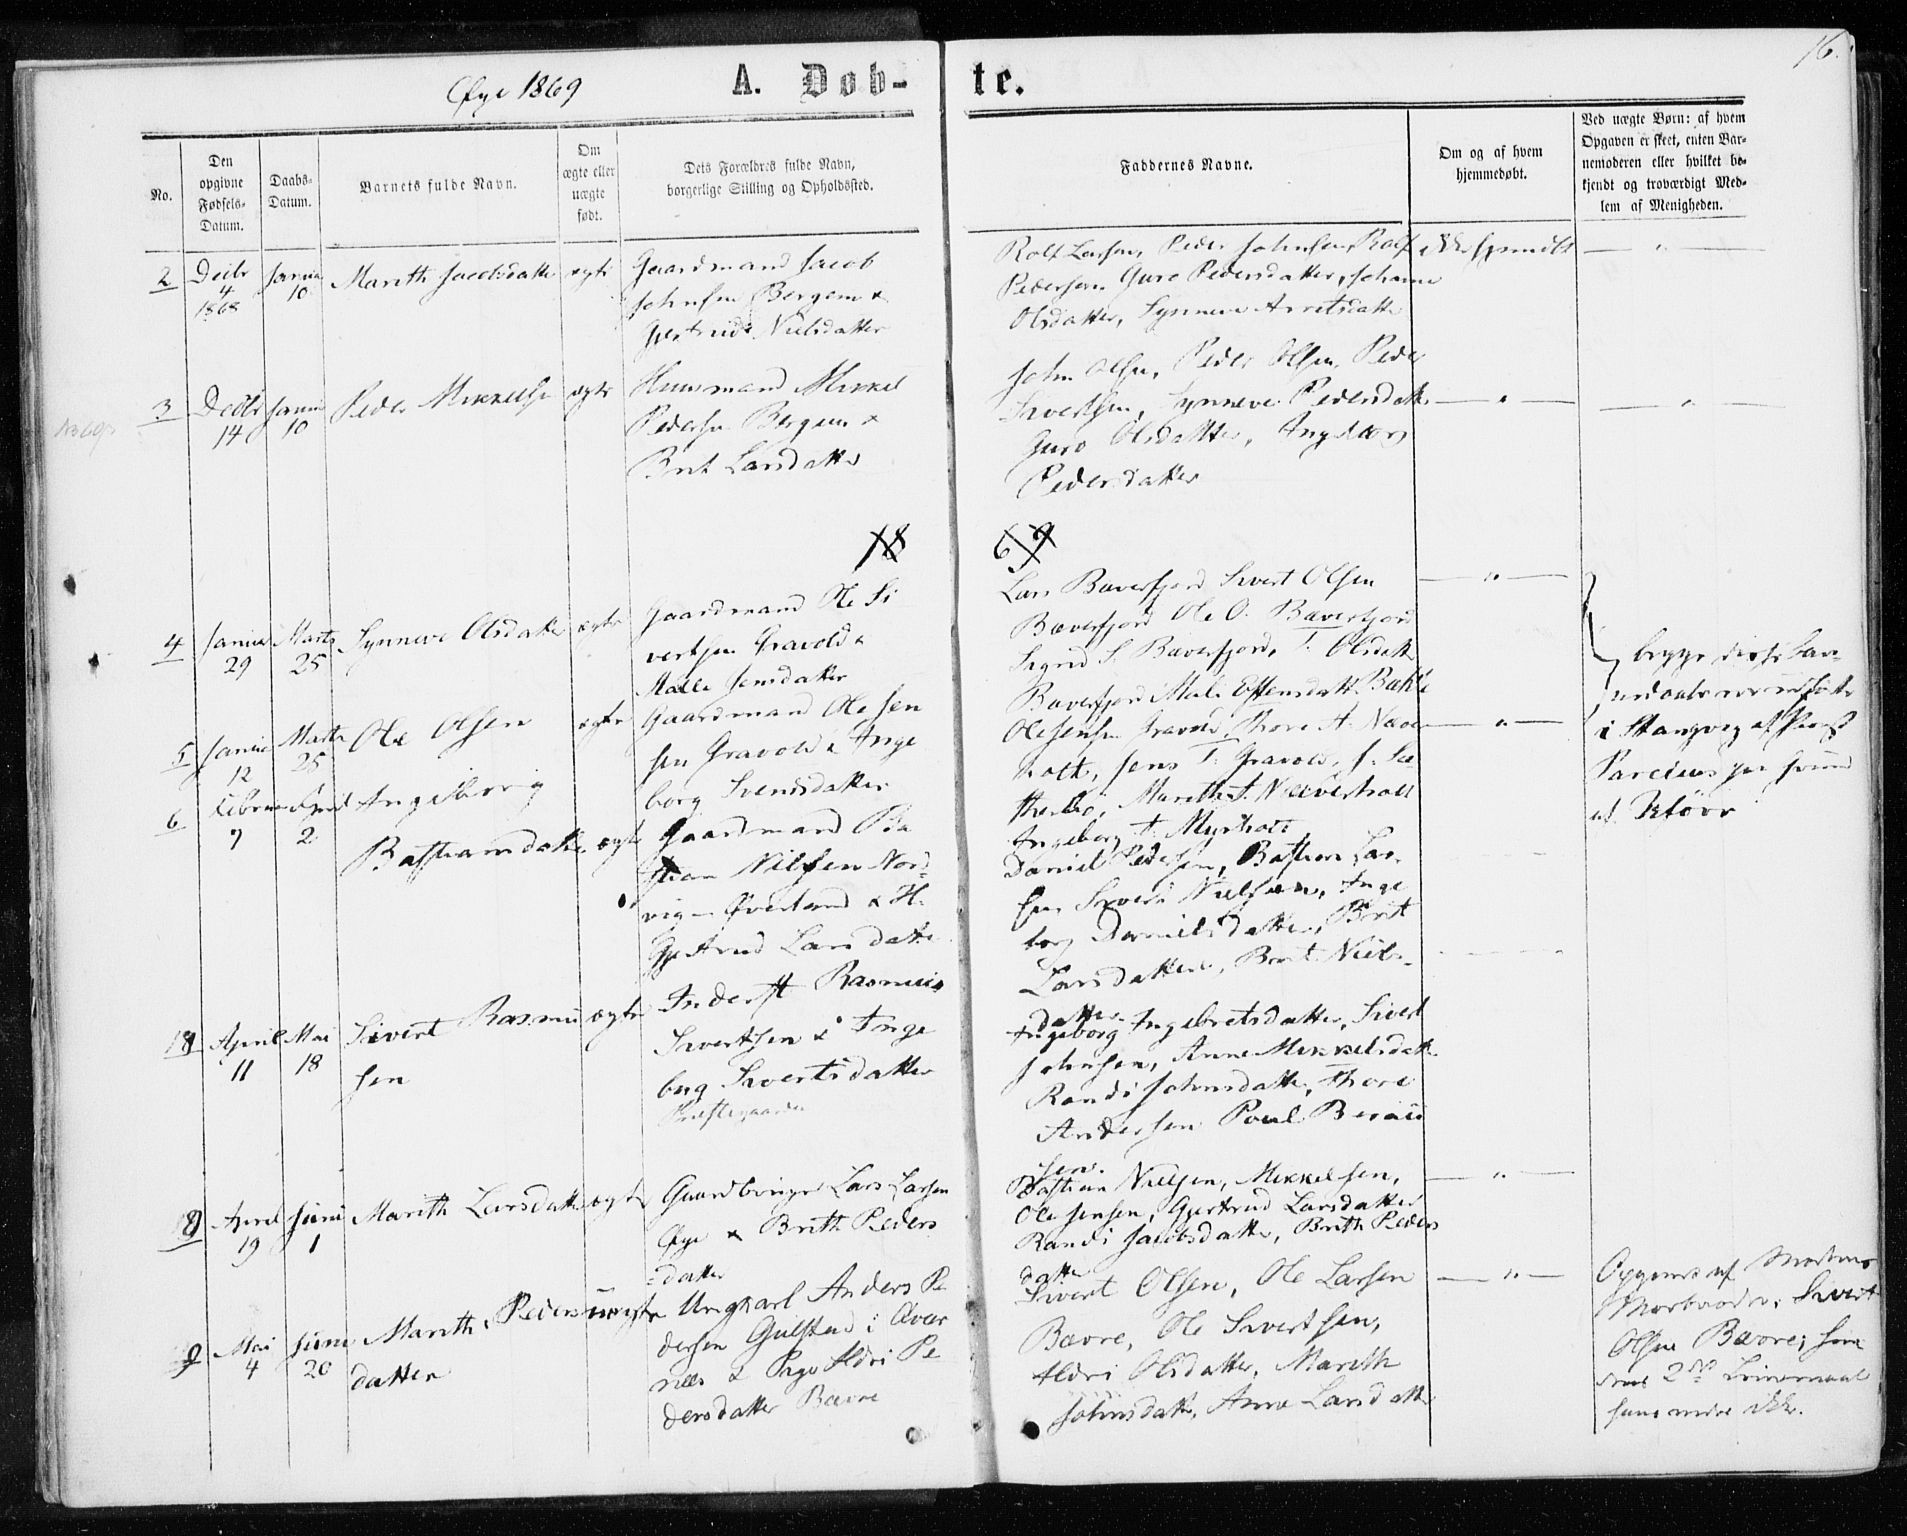 16.
Øye 1869
A. Døb-
te.
No.
Den
opgivne
Fødsels-
Datum.
Daabs-
Datum.
Barnets fulde Navn.
Om
ægte eller
uægte
født.
Dets Forældres fulde Navn,
borgerlige Stilling og Opholdssted.
Faddernes Navne.
Om og af hvem
hjemmedøbt.
Ved uægte Børn: af hvem
Opgaven er skeet, enten Bar-
nemoderen eller hvilket be-
kjendt og troværdigt Med-
lem af Menigheden.
2
Decbr
4
1868
Januar
10
Marith Jacobsdatter
ægte
Gaardmand Jacob
Johnsen Bergem &
Gjertrude Nielsdatter
Rolf Larsen, Peder Johnsen, Rolf
Pedersen, Guro Pedersdatter, Johanne
Olsdatter, Synneve Arntsdatter
ikke hjemdøbt
3
Decbr
14
Januar
10
Peder Mikkelsen
ægte
Huusmand Mikkel
Pedersen Bergem &
Brit Larsdatter
John Olsen, Peder Olsen, Peder
Sivertsen, Synneve Pedersdatter
Guro Olsdatter, Ingeborg
Pedersdatter
18
69
4
Januar
29
Marts
25
Synneve Olsdatter
ægte
Gaardmand Ole Si
vertsen Gravold &
Malle Jensdatter
Lars Bæverfjord Sivert Olsen
Bæverfjord Ole O. Bæverfjord
Sigrid S. Bæverfjord, T. Olsdatter
Bæverfjord Mali Estensdatt. Bakke
begge disse
i Stangvig af Præst
5
Januar
12
Marts
25
Ole Olsen
ægte
Gaardmand Ole Jen
sen Gravold & Inge
borg Svendsdatter
Ole Jensen Gravold Thore A. Næver
holt, Jens T. Gravold, J. Sæ
therbø, Marith T. Næverholt
Ingeborg T. Myrholt
6
Februar
7
April
2
Ingeborg
Bastiansdatter
ægte
Gaardmand Ba
stian Nilsen Nord
vig - Øverland & H.
Gjertrud Larsdatter
Daniel Pedersen, Bastian Lar-
sen Sivert Nielsen, Inge
borg Danielsdatter, Brit
Larsdatter, Brit Niels-
datter
7
April
11
Mai
18
Sivert Rasmus
sen
ægte
Inderst Rasmus
Sivertsen & Inge
borg Sivertsdatter
Præstegaarden
Ingeborg Ingebretsdatter, Sivert
Johnsen, Anne Mikkelsdatter
Randi Johnsdatter, Thore
Andersen Poul Bernt
sen.
8
April
19
Juni
1
Marith Larsdatter
ægte
Gaardbruger Lars Larsen
Øye & Brith Peders
datter
Bastian Nielsen, Mikkelsen,
Ole Jensen, Gjertrud Larsdatter
Randi Jacobsdatter, Brith Peders
datter
9
Mai
4
Juni
20
Marith Peders
datter
uægte
Ungkarl Anders Pe
dersen Gulstad i Aver
øes & Pige Aldri Pe
dersdatter Bævre
Sivert Olsen, Ole Larsen
Bævre, Ole Sivertsen,
Aldri Olsdatter, Marith
Johnsdatter, Anne Larsdatter
Opgivet af Moderens
Morbroder, Sivert
Olsen Bævre;